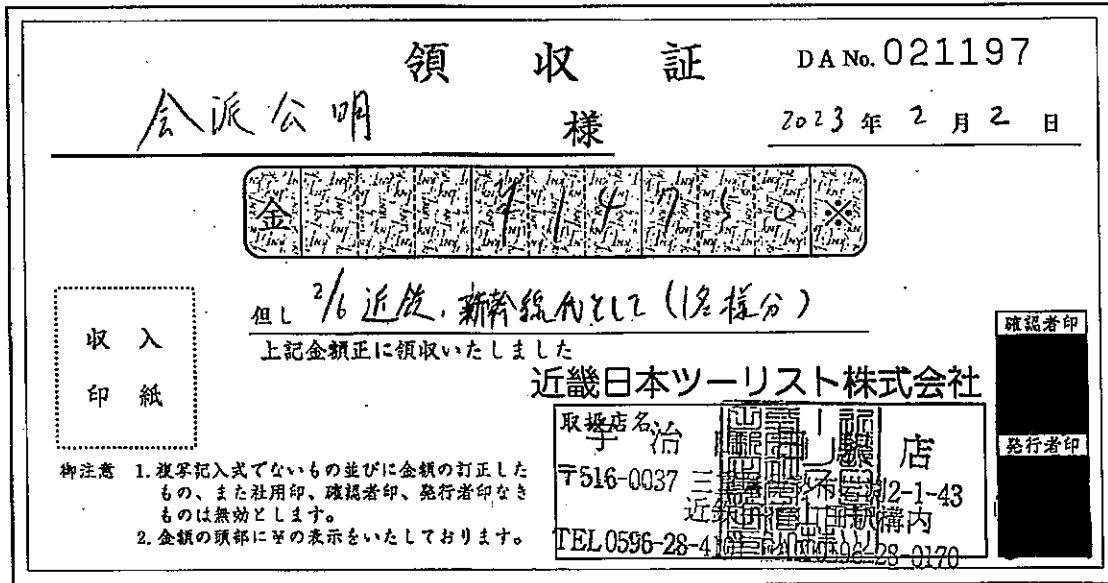 領収証
DA No. 021197
会派公明 様
2023 年 2 月 2 日
金 ¥14730※
但し 2/6 近鉄、新幹線代として(1名様分)
上記金額正に領収いたしました
収入
印紙
確認者印
発行者印
近畿日本ツーリスト株式会社
取扱店名
宇治 駅店
〒516-0037 三 2-1-43
近鉄 山田駅構内
TEL0596-28-41 0596-28-0170
御注意 1. 複写記入式でないもの並びに金額の訂正した
もの、また社用印、確認者印、発行者印なき
ものは無効とします。
2. 金額の頭部に¥の表示をいたしております。